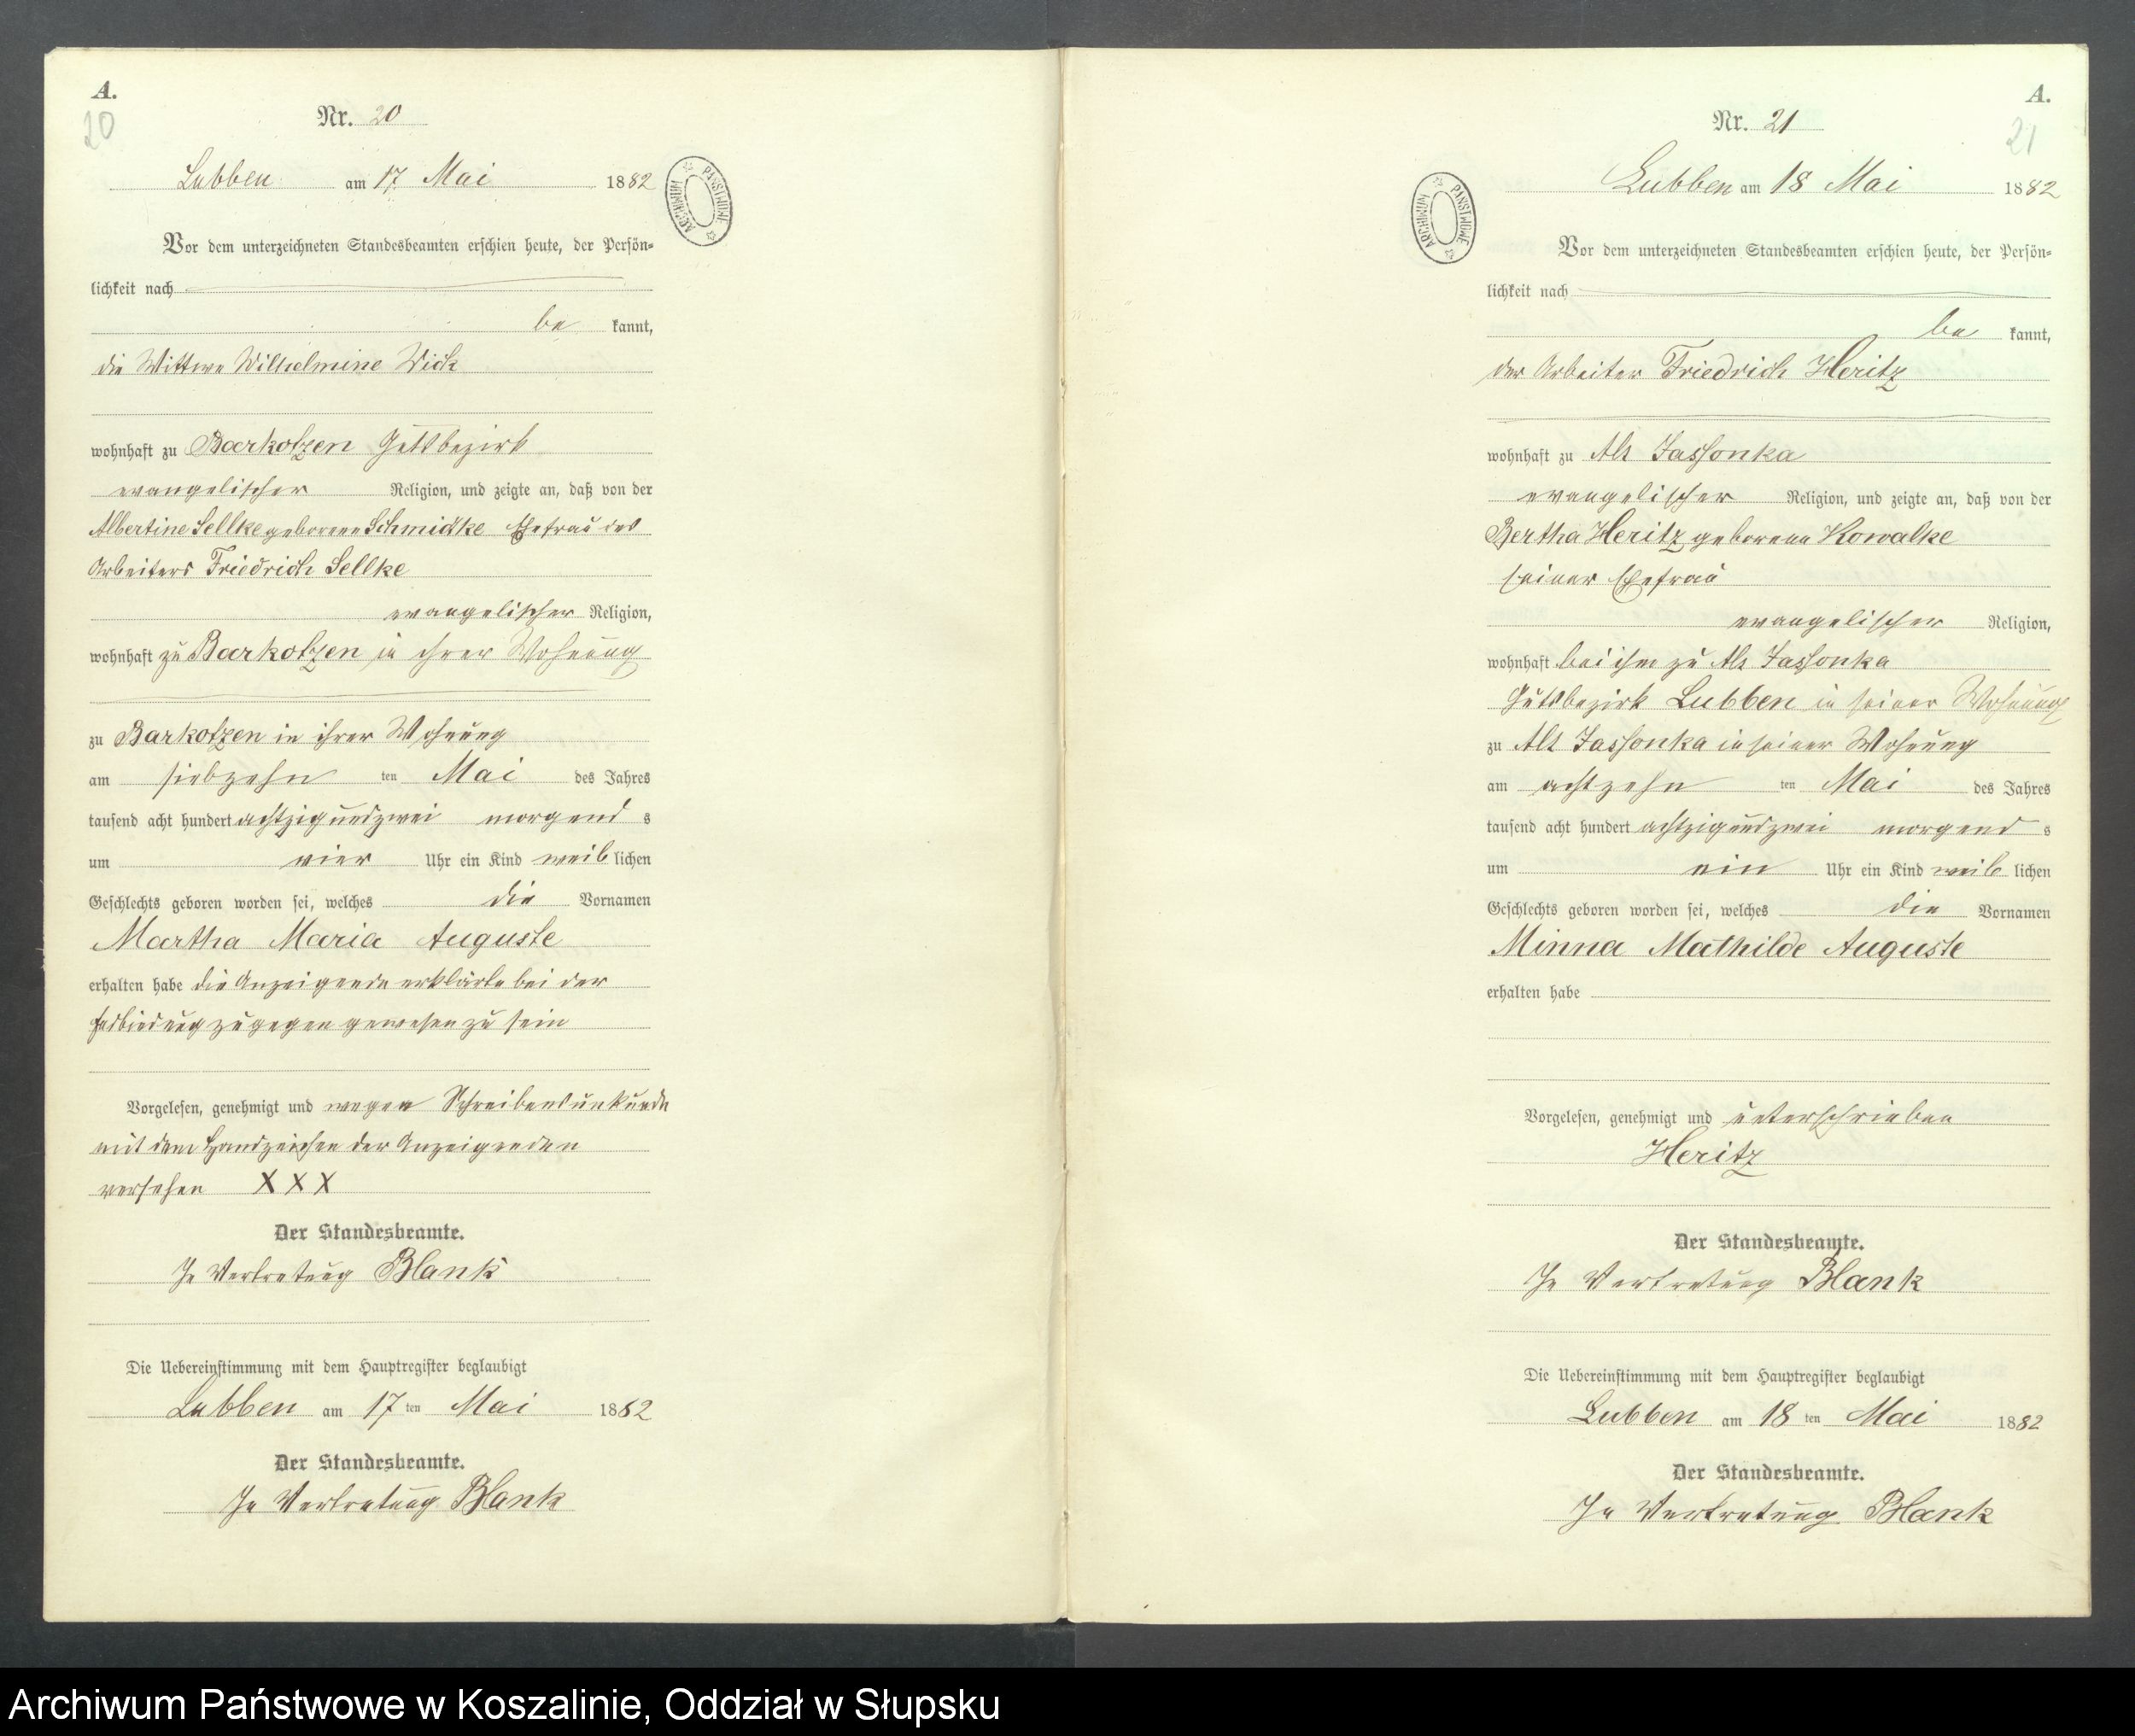 A.
20
Nr. 20
Lubben am 17 Mai 1882
ARCHIWUM PAŃSTWOWE
Vor dem unterzeichneten Standesbeamten erschien heute, der Persön=
lichkeit nach
be kannt,
die Wittwe Wilhelmine Wick
wohnhaft zu Barkotzen Gutsbezirk
evangelischer Religion, und zeigte an, daß von der
Albertine Sellke geborene Schmidke Ehefrau des
Arbeiters Friedrich Sellke
evangelischer Religion,
wohnhaft zu Barkotzen in ihrer Wohnung
zu Barkotzen in ihrer Wohnung
am siebzehn ten Mai des Jahres
tausend acht hundert achtzig und zwei morgend s
um vier Uhr ein Kind weib lichen
Geschlechts geboren worden sei, welches die Vornamen
Martha Maria Auguste
erhalten habe die Anzeigende erklärte bei der
Entbindung zugegen gewesen zu sein
Vorgelesen, genehmigt und wegen Schreibensunkunde
mit dem Handzeichen der Anzeigenden
versehen X X X
Der Standesbeamte.
In Vertretung Blank
Die Uebereinstimmung mit dem Hauptregister beglaubigt
Lubben am 17 ten Mai 1882
Der Standesbeamte.
In Vertretung Blank
A.
21
Nr. 21
Lubben am 18 Mai 1882
ARCHIWUM PAŃSTWOWE
Vor dem unterzeichneten Standesbeamten erschien heute, der Persön=
lichkeit nach
be kannt,
der Arbeiter Friedrich Heritz
wohnhaft zu Alt Jassonka
evangelischer Religion, und zeigte an, daß von der
Bertha Heritz geborene Kowalke
seiner Ehefrau
evangelischer Religion,
wohnhaft bei ihm zu Alt Jassonka
Gutsbezirk Lubben in seiner Wohnung
zu Alt Jassonka in seiner Wohnung
am achtzehn ten Mai des Jahres
tausend acht hundert achtzig und zwei morgend s
um ein Uhr ein Kind weib lichen
Geschlechts geboren worden sei, welches die Vornamen
Minna Mathilde Auguste
erhalten habe
Vorgelesen, genehmigt und unterschrieben
Heritz
Der Standesbeamte.
In Vertretung Blank
Die Uebereinstimmung mit dem Hauptregister beglaubigt
Lubben am 18 ten Mai 1882
Der Standesbeamte.
In Vertretung Blank
Archiwum Państwowe w Koszalinie, Oddział w Słupsku